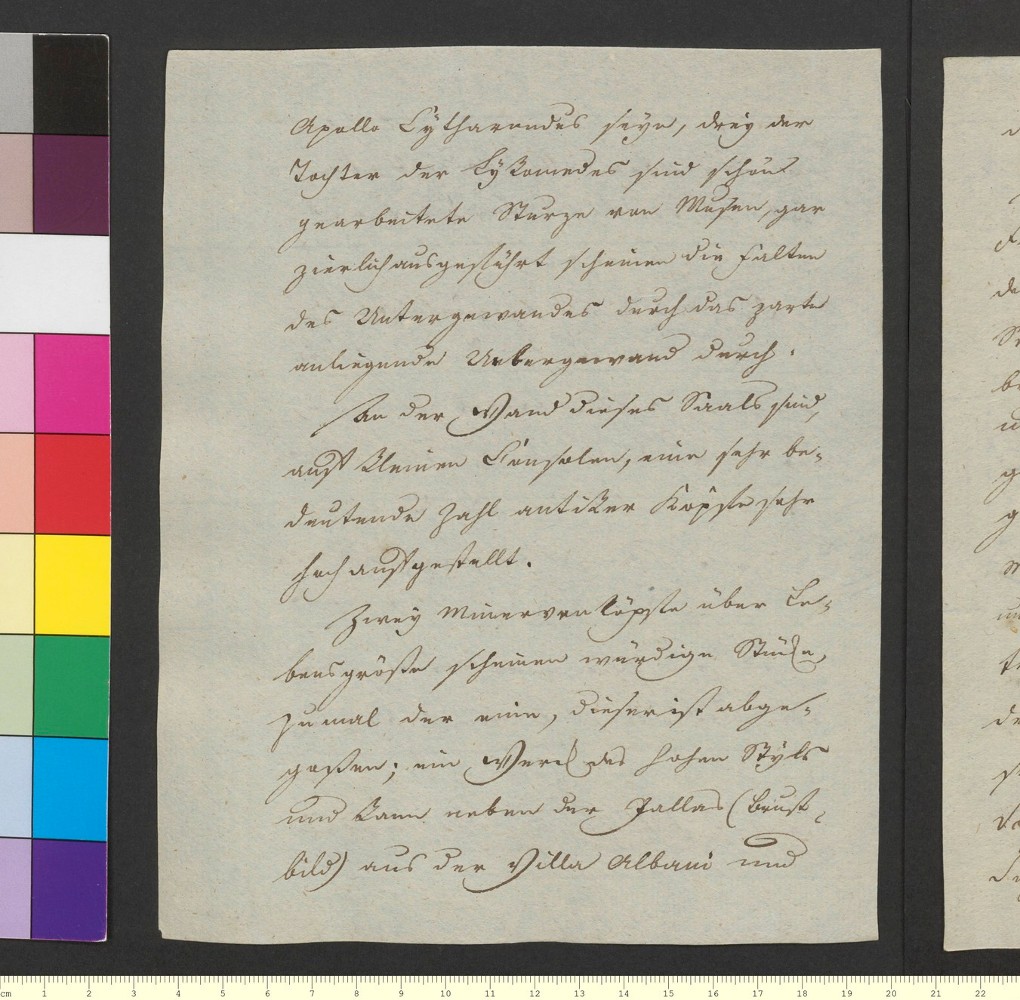 Apollo Cytharoedus seyn, drey der
Töchter der Lykomedes sind schön
gearbeitete Sturze von Musen, gar
zierlich ausgeführt scheinen die Falten
des Untergewandes durch das zarte
anliegende Uebergewand durch.
An der Wand dieses Saals sind,
auf kleinen Consolen, eine sehr be-
deutende Zahl antiker Köpfe sehr
hoch aufgestellt.
Zwey Minervenköpfe über Le-
bensgröße scheinen würdige Stücke,
zumal der eine, dieser ist abge-
goßen; ein Werck des hohen Styls
und kann neben der Pallas (Brust-
bild) aus der Villa Albani und